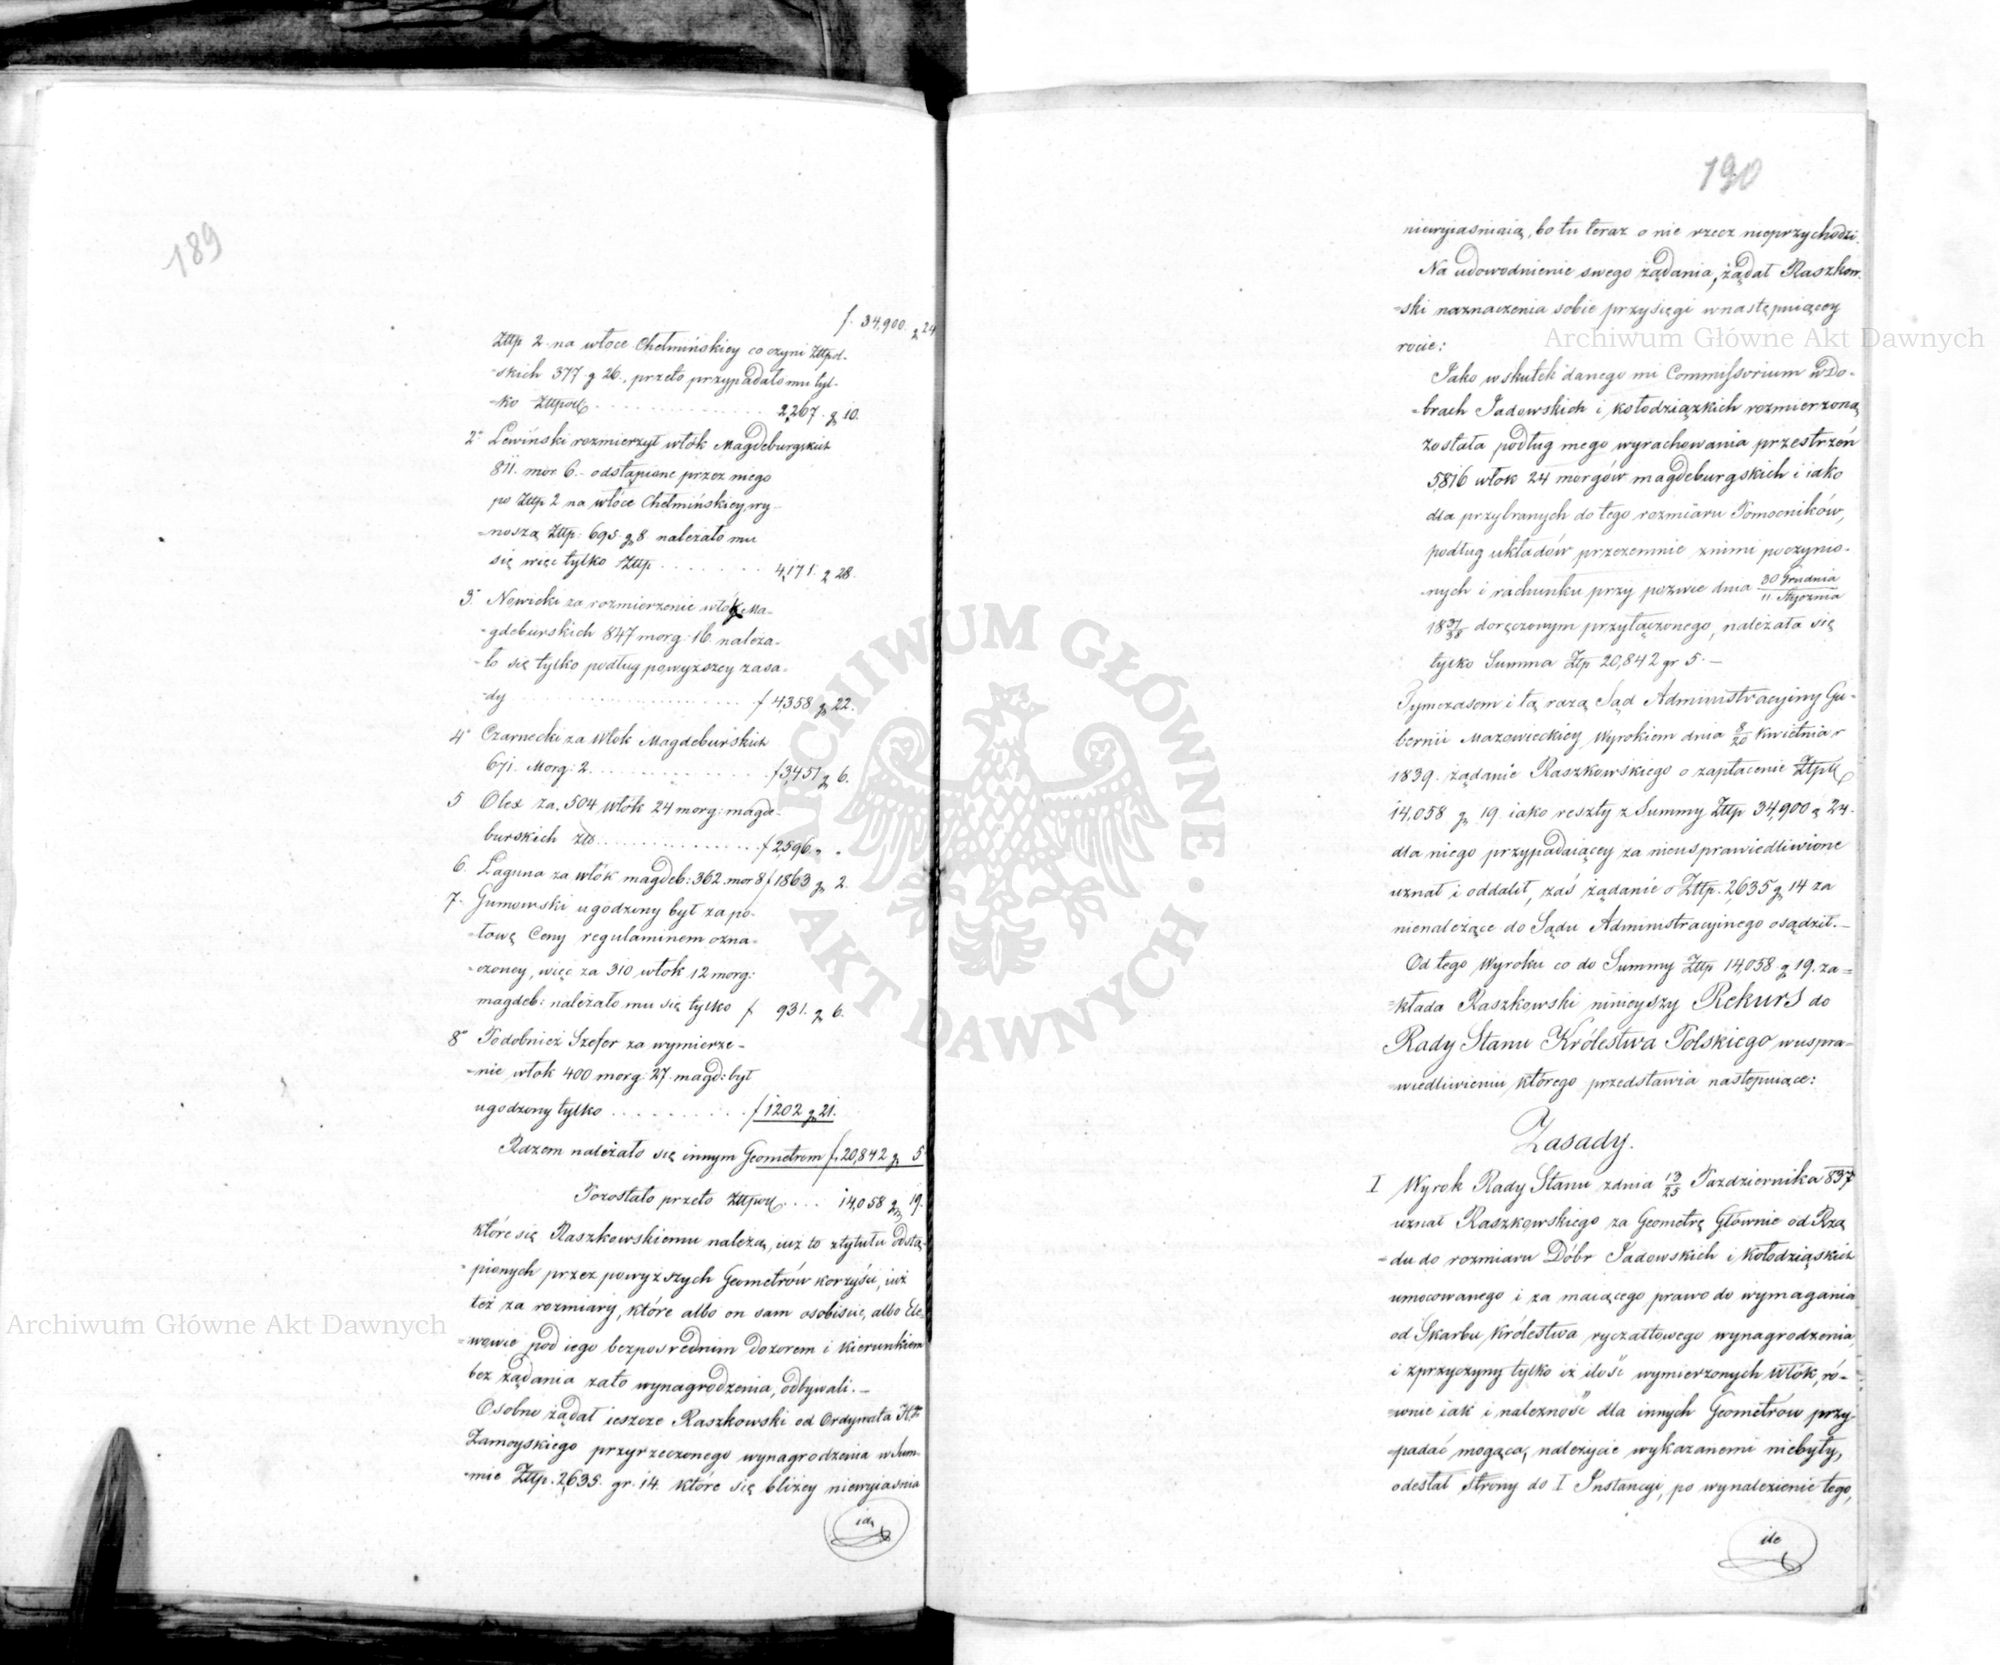 189
f. 34,900. g 24
Zttp 2 na włoce Chełmińskiey co czyni Zttpol-
-skich 377 g 26., przeto przypadało mu tyl-
-ko Zttpol. . . . . . . . . . 2,267. g 10.
2° Lewiński rozmierzył włók Magdeburgskich
811. mor 6. - odstąpione przez niego
po Zttp 2 na włóce Chełmińskiey, wy-
-noszą Zttp: 695. g 8. należało mu
się więc tylko Zttp . . . . . . . 4,171. g 28.
3° Nowicki za rozmierzenie włók Ma-
-gdeburskich 847 morg. 16. należa-
-ło się tylko podług powyższey zasa-
-dy . . . . . . . . . . . . f 4,358. g 22.
4° Czarnecki za Włók Magdeburskich
671. Morg: 2. . . . . . . . . . f 3,451 g 6.
5 Olex za. 504 Włók 24 morg: magde-
burskich Złt. . . . . . . . . . f 2596. " "
6. Laguna za włók magdeb: 362. mor 8 f 1863 g 2.
7. Gumowski ugodzony był za po-
-łowę Ceny regulaminem ozna-
-czoney, więc za 310 włók 12 morg:
magdeb: należało mu się tylko f 931. g 6.
8° Podobnież Szefer za wymierze-
-nie włók 400 morg: 27. magd: był
ugodzony tylko . . . . . . . . . f 1202 g 21.
Razem należało się innym Geometrom f. 20,842 g 5
Pozostało przeto Zttpol. . . . 14,058 g 19.
które się Raszkowskiemu należą, iuż to z tytułu odstą-
-pionych przez powyższych Geometrów korzyści, iuż
też za rozmiary, które albo on sam osobiscie, albo Ele-
-wowie pod iego bezposrednim dozorem i kierunkiem
bez żądania zato wynagrodzenia, odbywali. -
Osobno żądał ieszcze Raszkowski od Ordynata
Zamoyskiego przyrzeczonego wynagrodzenia w Sum-
-mie Zttp. 2,635. gr. 14. które się bliżey niewyiasnia
190
niewyiasniaią, bo tu teraz o nie rzecz nieprzychodzi.
Na udowodnienie swego żądania, żądał Raszkow-
-ski naznaczenia sobie przysięgi w następuiącey
rocie:
Jako w skutek danego mi Commissorium w Do-
-brach Jadowskich i Kołodziązkich rozmierzoną
została podług mego wyrachowania przestrzeń
5,816 włok 24 morgów magdeburgskich i iako
dla przybranych do tego rozmiaru Pomocników,
podług układów przezemnie z nimi poczynio-
-nych i rachunku przy pozwie dnia 30 Grudnia / 11 Stycznia
18 37/38 doręczonym przyłączonego, należała się
tylko Summa Złp 20,842 gr 5. -
Tymczasem i tą razą Sąd Administracyiny Gu-
bernii Mazowieckiey Wyrokiem dnia 8/20 Kwietnia r
1839. żądanie Raszkowskiego o zapłacenie Zttpol.
14,058 g 19. iako reszty z Summy Zttp 34,900 g 24.
dla niego przypadaiącey za nieusprawiedliwione
uznał i oddalił, zaś żądanie o Zttp. 2,635 g 14 za
nienależące do Sądu Administracyinego osądził. -
Od tego Wyroku co do Summy Zttp 14,058. g 19. za-
-kłada Raszkowski ninieyszy Rekurs do
Rady Stanu Królestwa Polskiego w uspra-
-wiedliwieniu którego przedstawia następuiące:
Zasady.
I Wyrok Rady Stanu z dnia 13/25 Pazdziernika 837
uznał Raszkowskiego za Geometrę Głównie od Rzą
-du do rozmiaru Dóbr Jadowskich i Kołodziąskich
umocowanego i za maiącego prawo do wymagania
od Skarbu Królestwa ryczałtowego wynagrodzenia,
i z przyczyny tylko iż ilość wymierzonych Włók, ró-
-wnie iak i należność dla innych Geometrów przy-
-padać mogąca, należycie wykazanemi niebyły,
odesłał Strony do I Instancyi, po wynalezienie tego,
ile
Archiwum Główne Akt Dawnych
Archiwum Główne Akt Dawnych
ARCHIWUM GŁÓWNE AKT DAWNYCH